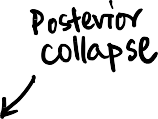 Posterior
collapse